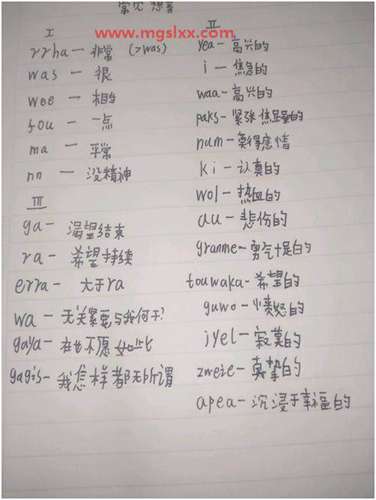 常见 想音
www.mgslxx.com
I
rrha — 非常 (>was)
was — 很
wee — 相当
fou — 一点
ma — 平常
nn — 没精神
III
ga — 渴望结束
ra — 希望持续
erra — 大于ra
wa — 无关紧要与我何干?
gaya — 再也不愿如此
gagis — 我怎样都无所谓
II
yea — 高兴的
i — 焦急的
waa — 高兴的
paks — 紧张焦虑的
num — 莫得感情
ki — 认真的
wol — 热血的
au — 悲伤的
granme — 勇气十足的
touwaka — 希望的
guwo — 愤怒的
iyel — 寂寞的
zweie — 真挚的
apea — 沉浸于幸福的